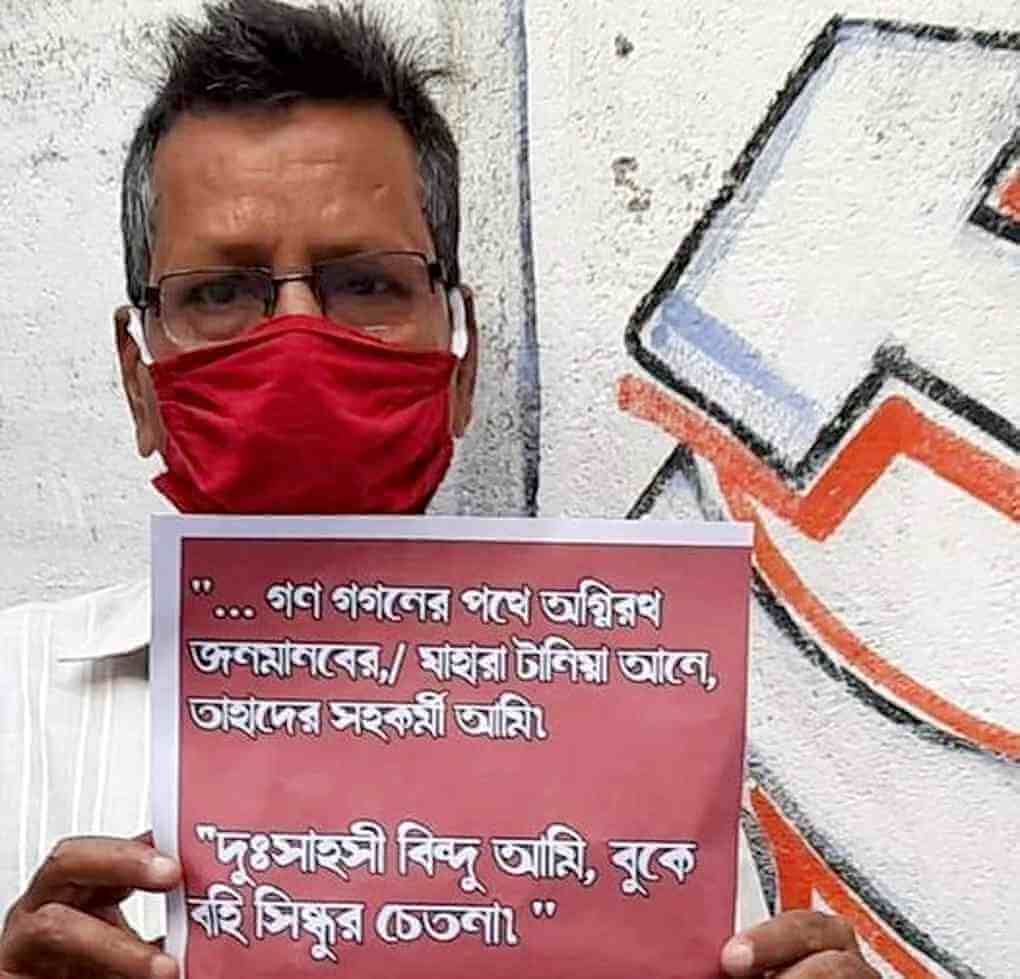 "... গণ গগনের পথে অগ্নিরথ
জনমানবের,/ যাহারা টানিয়া আনে,
তাহাদের সহকর্মী আমি৷
"দুঃসাহসী বিন্দু আমি, বুকে
বহি সিন্ধুর চেতনা৷ "